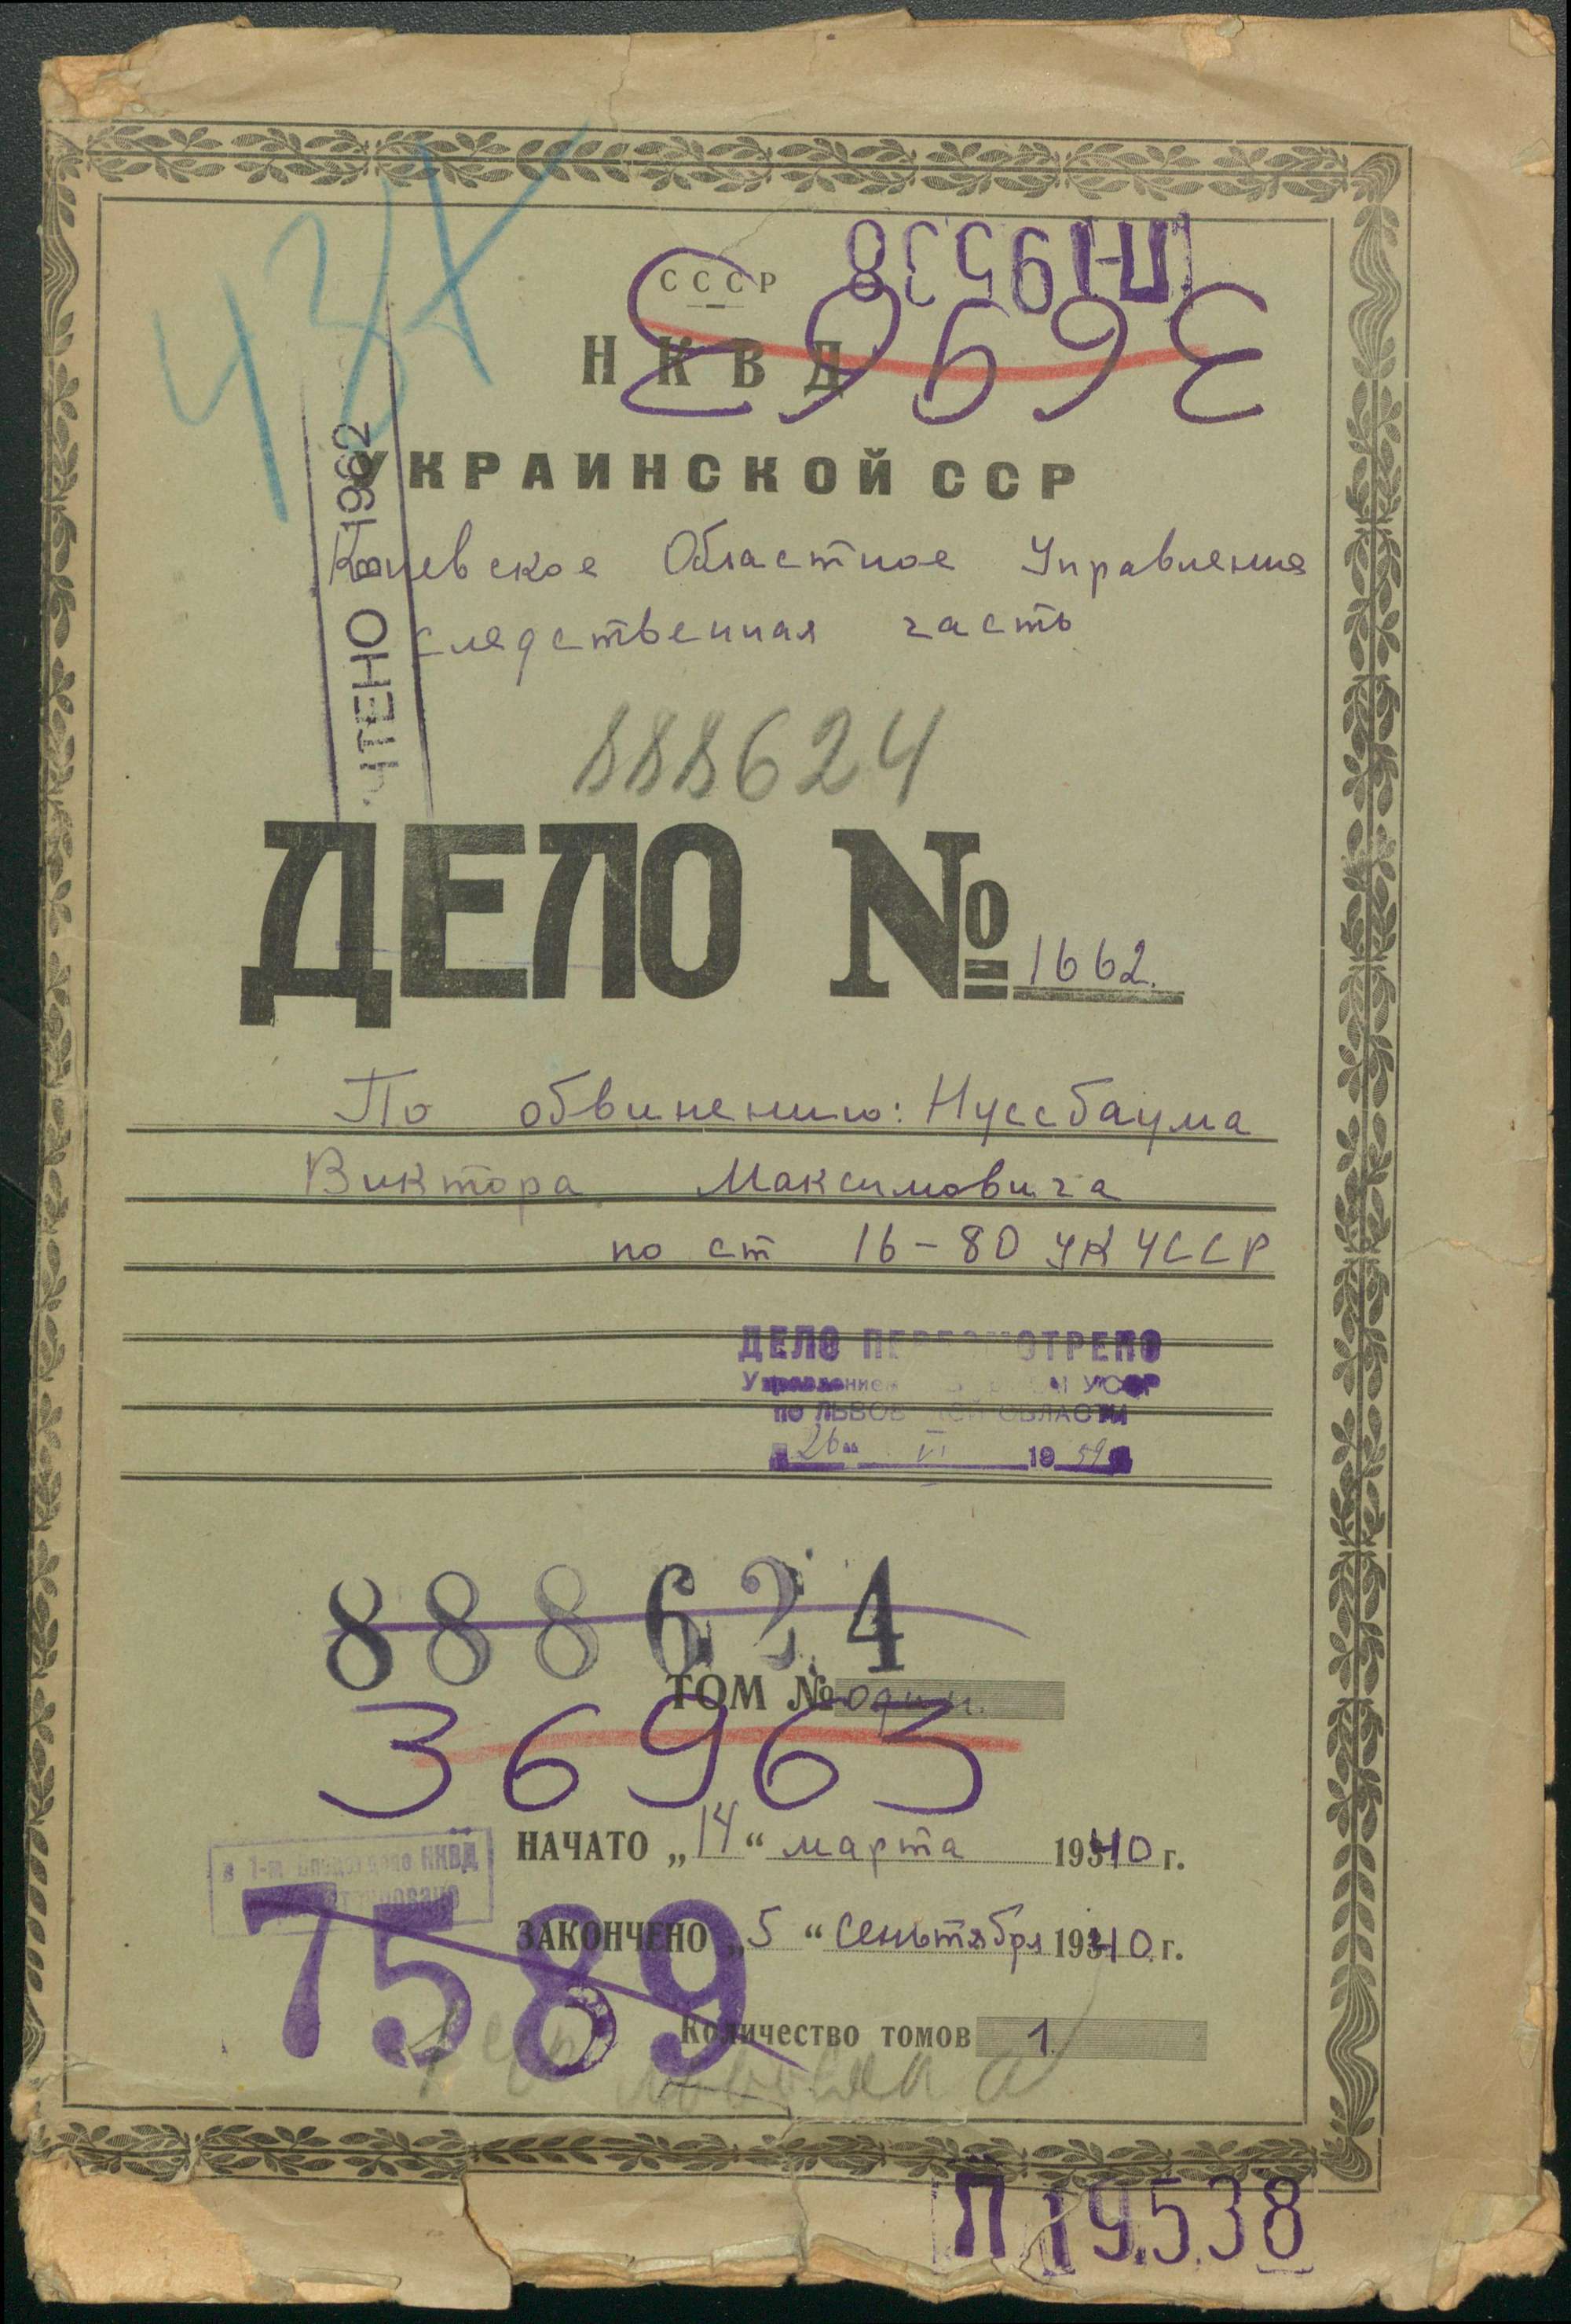 43х
П-19538
СССР
36963
НКВД
УКРАИНСКОЙ ССР
УЧТЕНО В 1962
Киевское Областное Управление
следственная часть
888624
ДЕЛО № 1662.
По обвинению: Нуссбаума
Виктора Максимовича
по ст 16-80 УК УССР
ДЕЛО ПЕРЕСМОТРЕНО
Управлением УССР
ПО ЛЬВОВСКОЙ ОБЛАСТИ
"26" VI 1959
888624
ТОМ № один.
36963
НАЧАТО „14“ марта 1940 г.
в 1-м НКВД
ЗАКОНЧЕНО „5“ сеньтября 1940 г.
7589
Количество томов 1.
П 19538